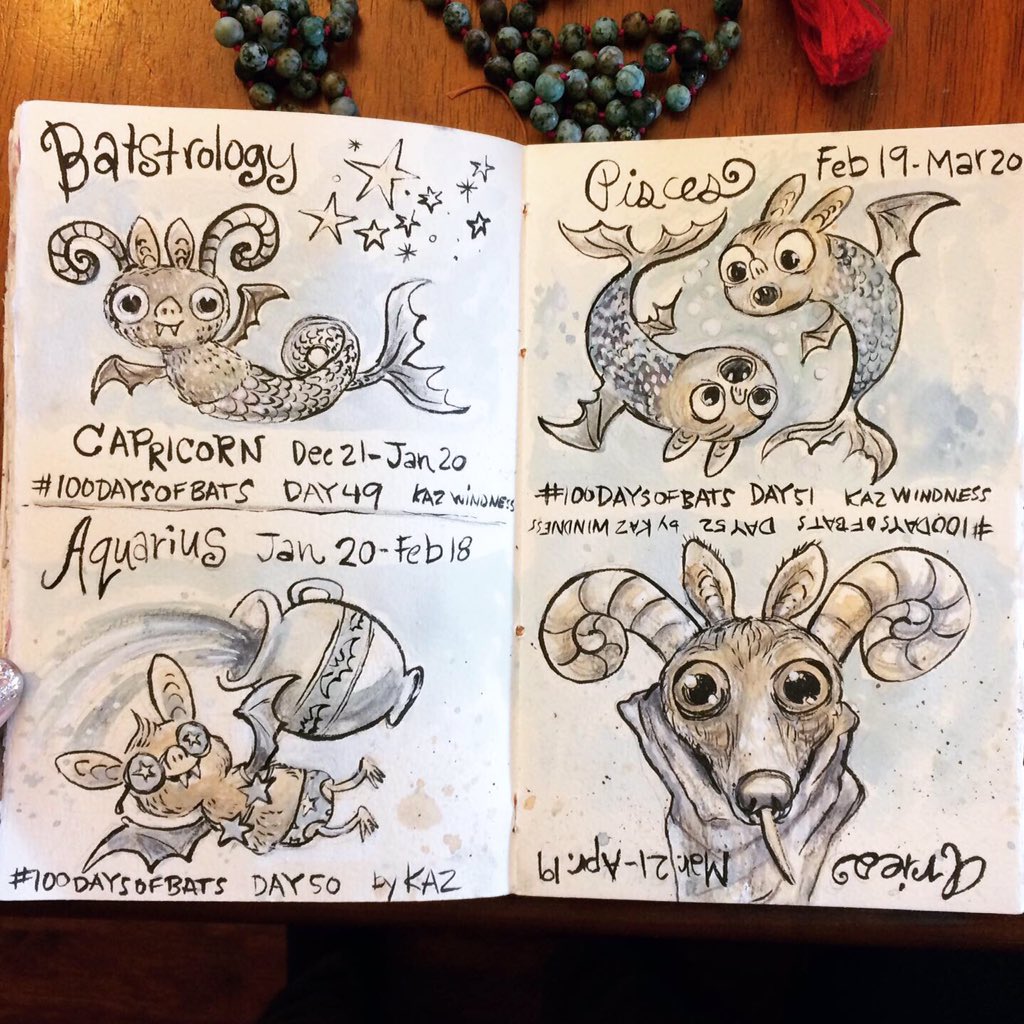 Batstrology
CAPRICORN Dec 21-Jan 20
#100DAYSOFBATS DAY 49 KAZ WINDNESS
Aquarius Jan 20-Feb 18
#100DAYSOFBATS DAY 50 by KAZ
Pisces Feb 19-Mar 20
#100DAYSOFBATS DAY 51 KAZ WINDNESS
#100DAYSOFBATS DAY 52 by KAZ WINDNESS
Aries Mar. 21-Apr. 19